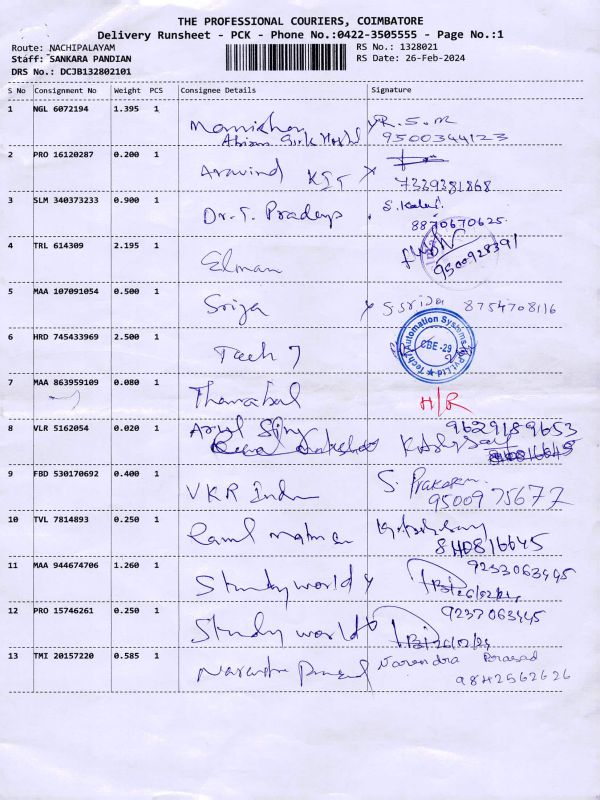 THE PROFESSIONAL COURIERS, COIMBATORE
Delivery Runsheet - PCK - Phone No.:0422-3505555 - Page No.:1
Route: NACHIPALAYAM
RS No.: 1328021
Staff: SANKARA PANDIAN
RS Date: 26-Feb-2024
DRS No.: DCJB132802101
S No Consignment No Weight PCS Consignee Details Signature
1 NGL 6072194 1.395 1
R.S.M
9500344123
2 PRO 16120287 0.200 1
Aravind KIT
7339381868
3 SLM 340373233 0.900 1
Dr.T. Pradeep
8870670625
4 TRL 614309 2.195 1
Elman
9500928391
5 MAA 107091054 0.500 1
Srija
S Srija 8754708116
6 HRD 745433969 2.500 1
Tech 7
Tech7 Automation Systems Pvt Ltd
CBE -29
7 MAA 863959109 0.080 1
H/R
8 VLR 5162054 0.020 1
9629189653
9 FBD 530170692 0.400 1
VKR
S. Prakash
9500975677
10 TVL 7814893 0.250 1
11 MAA 944674706 1.260 1
Study world
26/02/24
12 PRO 15746261 0.250 1
Study world
26/02/24
13 TMI 20157220 0.585 1
Narendra Prasad
9842562626